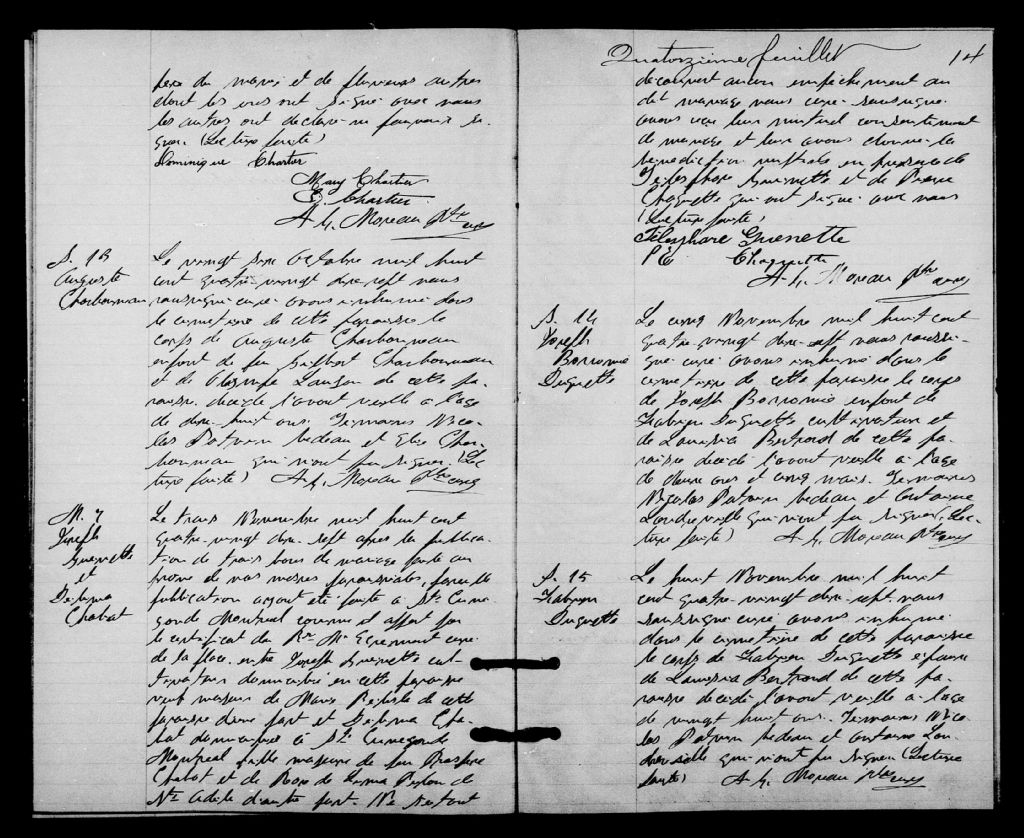 pere du mari et de plusieurs autres
dont les uns ont signé avec nous
les autres ont declaré ne pouvoir si-
gner. (Lecture faite)
Dominique Chartier
Mary Chartier
E. Chartier
A. G. Moreau Ptre curé
S. 13
Auguste
Charbonneau
Le vingt six Octobre mil huit
cent quatre-vingt dix-sept nous
soussigné curé avons inhumé dans
le cimetiere de cette paroisse le
corps de Auguste Charbonneau
enfant de feu Gilbert Charbonneau
et de Olympe Lauzon de cette pa-
roisse. décédé l'avant veille a l'age
de dix-huit ans. Temoins Nico-
las Potvin bedeau et Elie Char-
bonneau qui n'ont pu signer. (Lec-
ture faite) A. G. Moreau Ptre curé
M. 7
Joseph
Guenette
et
Delima
Chabot
Le trois Novembre mil huit cent
quatre-vingt dix-sept apres la publica-
tion de trois bans de mariage faite au
prone de nos messes paroissiales, pareille
publication ayant été faite à Ste Cune-
gonde Montreal comme il appert par
le certificat du Rev. Mr Ecrement curé
de la place. entre Joseph Guenette cul-
tivateur domicilié en cette paroisse
veuf majeur de Marie de cette
paroisse d'une part et Delima Cha-
bot domiciliée à Ste Cunegonde
Montreal fille majeure de feu Prospere
Chabot et de Rose de Lima de
Ste Adele d'autre part. Ne s'etant
Quatorzième feuillet 14
découvert aucun empêchement au
dit mariage nous curé soussigné
avons reçu leur mutuel consentement
de mariage et leur avons donné la
benediction nuptiale en presence de
Telesphore Guenette et de Pierre
Choquette qui ont signé avec nous
(Lecture faite)
Télesphore Guenette
P E Choquette
A. G. Moreau Ptre curé
S. 14
Joseph
Borromé
Duquette
Le cinq Novembre mil huit cent
quatre-vingt dix-sept nous soussi-
gné curé avons inhumé dans le
cimetiere de cette paroisse le corps
de Joseph Borromé enfant de
Fabien Duquette cultivateur et
de Lamesia Bertrand de cette pa-
roisse décédé l'avant veille a l'age
de deux ans et cinq mois. Temoins
Nicolas Potvin bedeau et Antoine
Laudreville qui n'ont pu signer. (Lec-
ture faite) A. G. Moreau Ptre curé
S. 15
Fabien
Duquette
Le huit Novembre mil huit
cent quatre-vingt dix-sept. nous
soussigné curé avons inhumé
dans le cimetiere de cette paroisse
le corps de Fabien Duquette epoux
de Lamesia Bertrand de cette pa-
roisse décédé l'avant veille a l'age
de vingt huit ans. Temoins Nico-
las Potvin bedeau et Antoine Lau-
dreville qui n'ont pu signer (Lecture
faite) A. G. Moreau Ptre curé